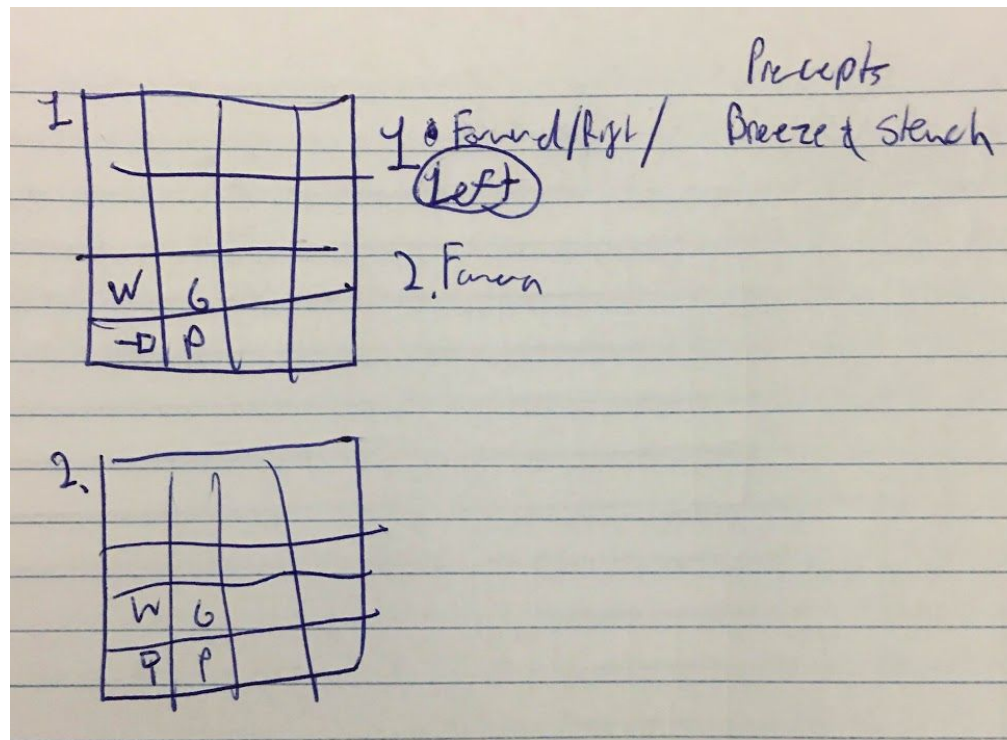 Precepts
1
1. Forward/Right/
Breeze & Stench
Left
2. Forward
W G
P
2.
W G
P